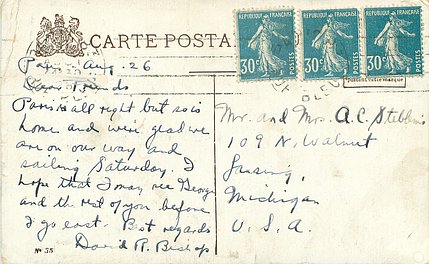 CARTE POSTA
REPUBLIQUE FRANÇAISE
30c
REPUBLIQUE FRANÇAISE
30c
REPUBLIQUE FRANÇAISE
30c
Paris Aug. 26
Dear Friends
Paris is all right but so is
home and we're glad we
are on our way and
sailing Saturday. I
hope that I may see George
and the rest of you before
I go east. Best regards
David R. Bishop
No 38
Mr. and Mrs. A.C. Stebbins
109 N. Walnut
Lansing,
Michigan
U. S. A.